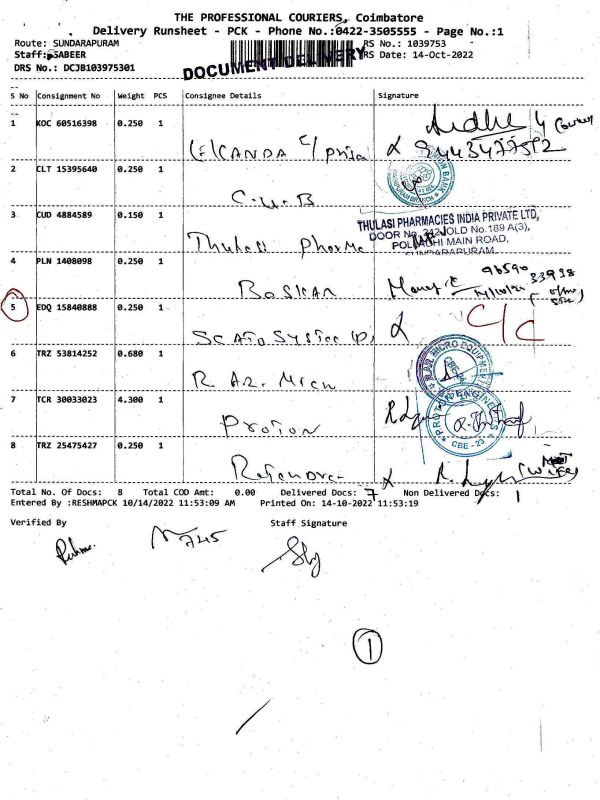 THE PROFESSIONAL COURIERS, Coimbatore
Delivery Runsheet - PCK - Phone No.:0422-3505555 - Page No.:1
Route: SUNDARAPURAM
RS No.: 1039753
Staff: SABEER
RS Date: 14-Oct-2022
DRS No.: DCJB103975301
DOCUMENT DELIVERY
S No Consignment No Weight PCS Consignee Details Signature
1 KOC 60516398 0.250 1
2 CLT 15395640 0.250 1
C.U.B
3 CUD 4884589 0.150 1
Thulasi Pharma
THULASI PHARMACIES INDIA PRIVATE LTD,
DOOR No. 242 OLD No.189 A(3),
POLLACHI MAIN ROAD,
SUNDARAPURAM
4 PLN 1408098 0.250 1
Baskar
96590
33938
5 EDQ 15840888 0.250 1
C/C
6 TRZ 53814252 0.680 1
7 TCR 30033023 4.300 1
Proton
CBE - 23
8 TRZ 25475427 0.250 1
Total No. Of Docs: 8 Total COD Amt: 0.00 Delivered Docs: 7 Non Delivered Docs: 1
Entered By :RESHMAPCK 10/14/2022 11:53:09 AM Printed On: 14-10-2022 11:53:19
Verified By Staff Signature
1